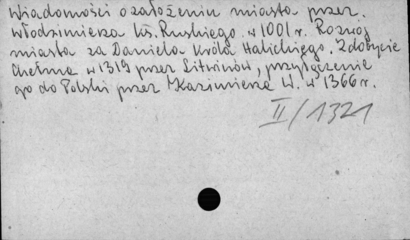 Wiadomości o założeniu miasta przez
Włodzimierza Ks. Ruskiego w 1001 r. Rozwój
miasta za Daniela Króla Halickiego. Zdobycie
Chełma w 1319 przez Litwinów, przyłączenie
go do Polski przez Kazimierza W. w 1366 r.
II/1321